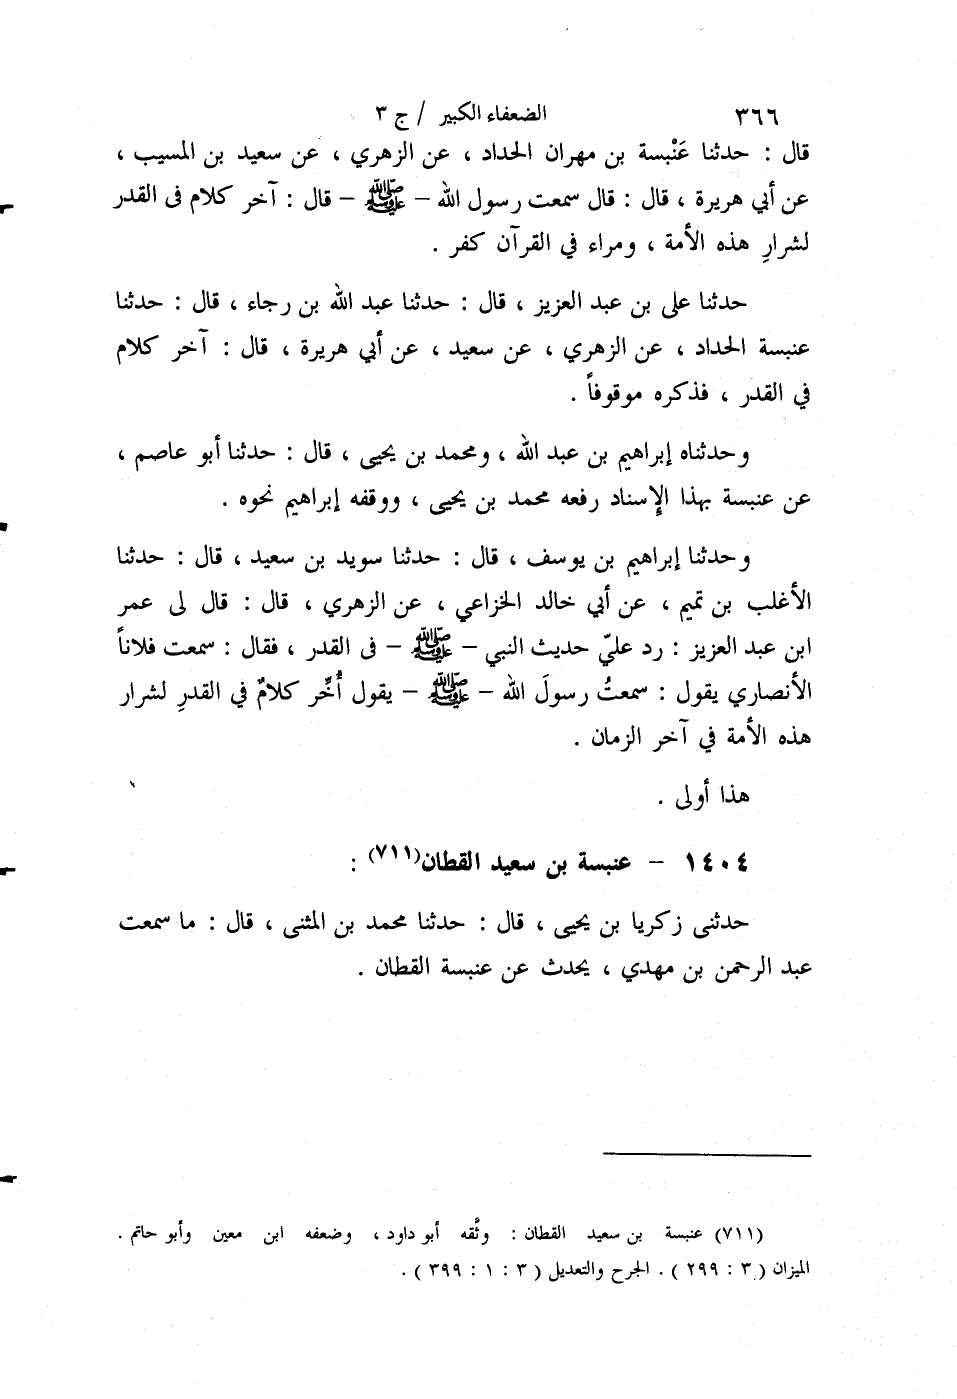 ٣٦٦ الضعفاء الكبير / ج ٣
قال : حدثنا عَنْبسة بن مهران الحداد ، عن الزهري ، عن سعيد بن المسيب ،
عن أبي هريرة ، قال : قال سمعت رسول الله – ﷺ – قال : آخر كلام فى القدر
لشرارِ هذه الأمة ، ومراء في القرآن كفر .
حدثنا على بن عبد العزيز ، قال : حدثنا عبد الله بن رجاء ، قال : حدثنا
عنبسة الحداد ، عن الزهري ، عن سعيد ، عن أبي هريرة ، قال : آخر كلام
في القدر ، فذكره موقوفاً .
وحدثناه إبراهيم بن عبد الله ، ومحمد بن يحيى ، قال : حدثنا أبو عاصم ،
عن عنبسة بهذا الإسناد رفعه محمد بن يحيى ، ووقفه إبراهيم نحوه .
وحدثنا إبراهيم بن يوسف ، قال : حدثنا سويد بن سعيد ، قال : حدثنا
الأغلب بن تميم ، عن أبي خالد الخزاعي ، عن الزهري ، قال : قال لى عمر
ابن عبد العزيز : رد عليّ حديث النبي – ﷺ – فى القدر ، فقال : سمعت فلاناً
الأنصاري يقول : سمعتُ رسولَ الله – ﷺ – يقول أُخِّر كلامٌ في القدرِ لشرار
هذه الأمة في آخر الزمان .
هذا أولى .
١٤٠٤ – عنبسة بن سعيد القطان(٧١١) :
حدثنى زكريا بن يحيى ، قال : حدثنا محمد بن المثنى ، قال : ما سمعت
عبد الرحمن بن مهدي ، يحدث عن عنبسة القطان .
(٧١١) عنبسة بن سعيد القطان : وثَّقه أبو داود ، وضعفه ابن معين وأبو حاتم .
الميزان ( ٣ : ٢٩٩ ) . الجرح والتعديل ( ٣ : ١ : ٣٩٩ ) .